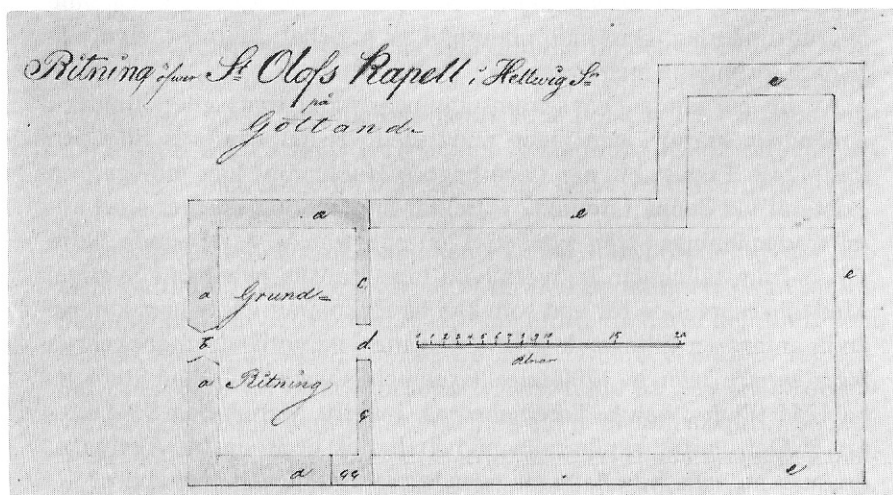 Ritning öfwer St Olofs Kapell i Hellwig Sn
på
Gottland
e
a e
a Grund= c. e
b. d. 15 20
Alnar
a Ritning c
a e